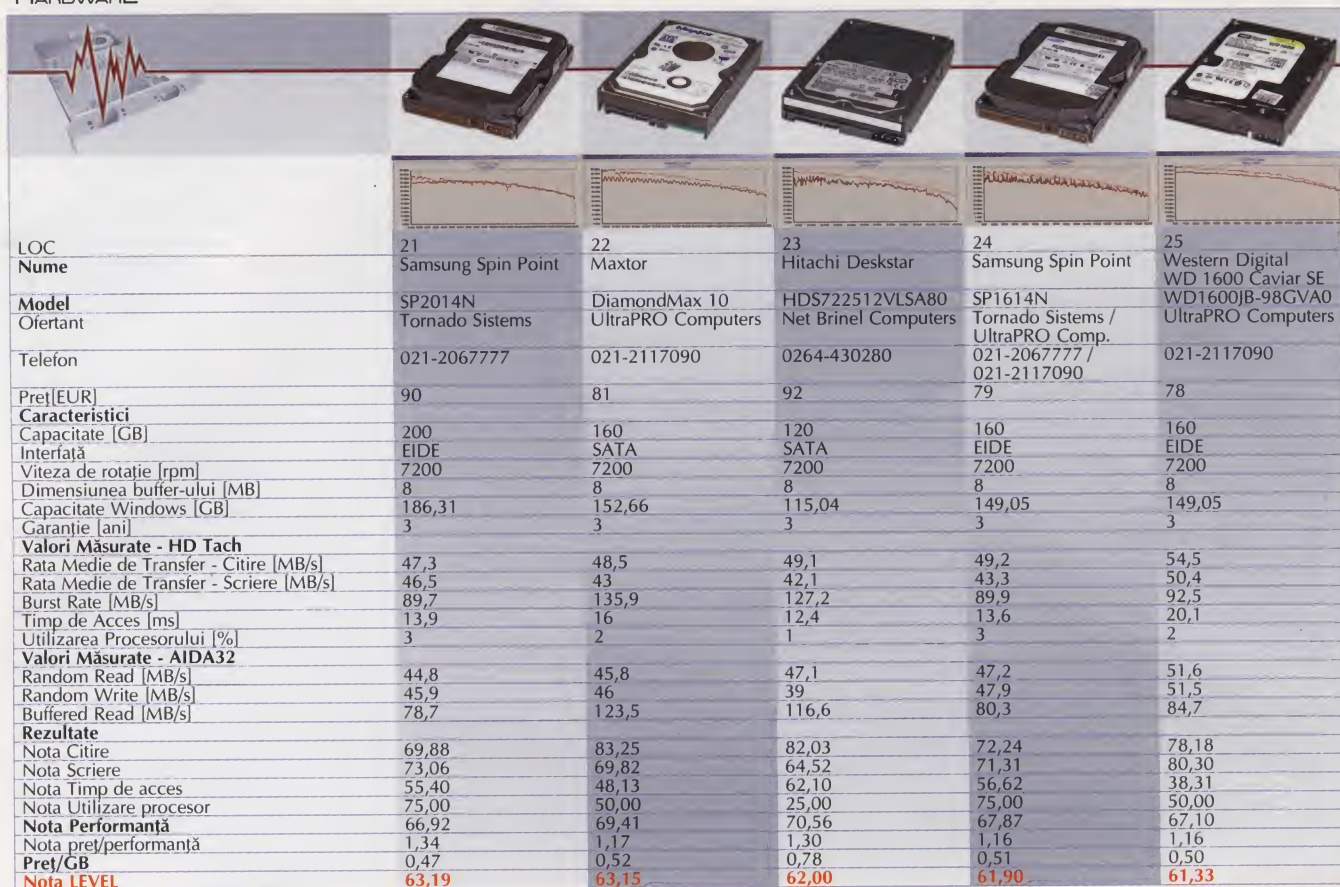 HARDWARE
Maxtor
LOC 21 22 23 24 25
Nume Samsung Spin Point Maxtor Hitachi Deskstar Samsung Spin Point Western Digital
WD 1600 Caviar SE
Model SP2014N DiamondMax 10 HDS722512VLSA80 SP1614N WD1600JB-98GVA0
Ofertant Tornado Sistems UltraPRO Computers Net Brinel Computers Tornado Sistems / UltraPRO Computers
UltraPRO Comp.
Telefon 021-2067777 021-2117090 0264-430280 021-2067777 / 021-2117090
021-2117090
Preţ[EUR] 90 81 92 79 78
Caracteristici
Capacitate [GB] 200 160 120 160 160
Interfaţă EIDE SATA SATA EIDE EIDE
Viteza de rotaţie [rpm] 7200 7200 7200 7200 7200
Dimensiunea buffer-ului [MB] 8 8 8 8 8
Capacitate Windows [GB] 186,31 152,66 115,04 149,05 149,05
Garanţie [ani] 3 3 3 3 3
Valori Măsurate - HD Tach
Rata Medie de Transfer - Citire [MB/s] 47,3 48,5 49,1 49,2 54,5
Rata Medie de Transfer - Scriere [MB/s] 46,5 43 42,1 43,3 50,4
Burst Rate [MB/s] 89,7 135,9 127,2 89,9 92,5
Timp de Acces [ms] 13,9 16 12,4 13,6 20,1
Utilizarea Procesorului [%] 3 2 1 3 2
Valori Măsurate - AIDA32
Random Read [MB/s] 44,8 45,8 47,1 47,2 51,6
Random Write [MB/s] 45,9 46 39 47,9 51,5
Buffered Read [MB/s] 78,7 123,5 116,6 80,3 84,7
Rezultate
Nota Citire 69,88 83,25 82,03 72,24 78,18
Nota Scriere 73,06 69,82 64,52 71,31 80,30
Nota Timp de acces 55,40 48,13 62,10 56,62 38,31
Nota Utilizare procesor 75,00 50,00 25,00 75,00 50,00
Nota Performanţă 66,92 69,41 70,56 67,87 67,10
Nota preţ/performanţă 1,34 1,17 1,30 1,16 1,16
Preţ/GB 0,47 0,52 0,78 0,51 0,50
Nota LEVEL 63,19 63,15 62,00 61,90 61,33